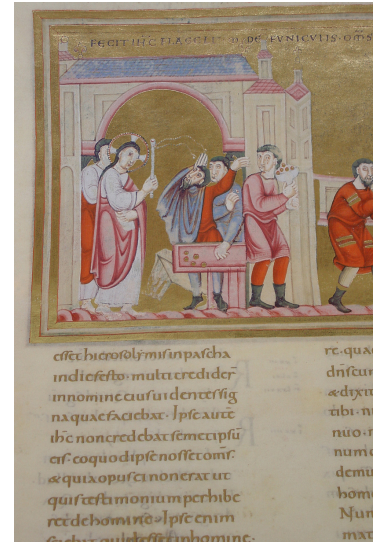 FECIT hIC FLAGELLŪ DE FVNICVLIS OM̄S
esset hierosolymis in pascha
in die festo· multi credider̄
in nomine eius uidentes sig
na quae faciebat· Ipse autē
ihc̄ non credebat semet ipsū
eis· eo quod ipse nosset om̄s·
& quia opus ei non erat ut
quis testimonium perhibe
ret de homine· Ipse enim
sciebat quid esset in homine·
re· quae
dn̄s cum
& dixit
tibi· n
nuo· n
numd
demu
homo
Num
mat